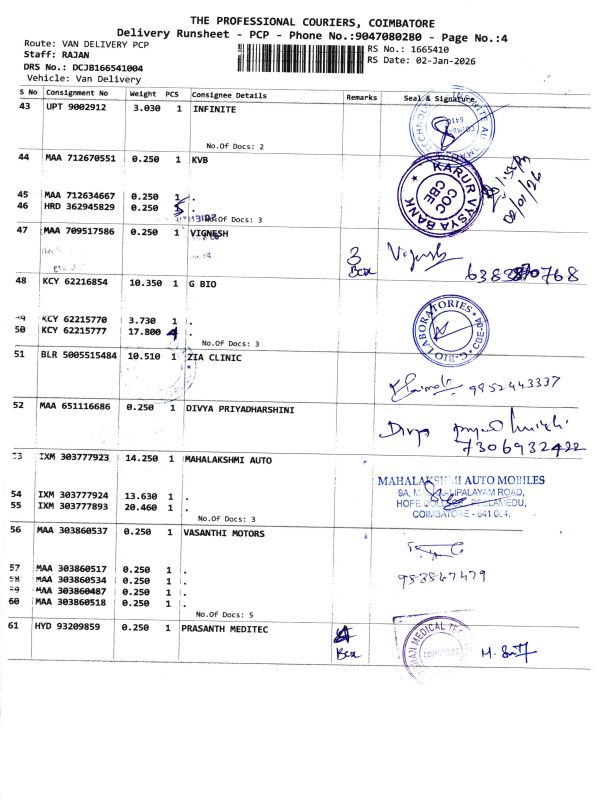 THE PROFESSIONAL COURIERS, COIMBATORE
Delivery Runsheet - PCP - Phone No.:9047080280 - Page No.:4
Route: VAN DELIVERY PCP
RS No.: 1665410
Staff: RAJAN
RS Date: 02-Jan-2026
DRS No.: DCJB166541004
Vehicle: Van Delivery
S No Consignment No Weight PCS Consignee Details Remarks Seal & Signature
43 UPT 9002912 3.030 1 INFINITE
No.Of Docs: 2
44 MAA 712670551 0.250 1 KVB
KARUR VYSYA BANK
COC
CBE
02/01/26
45 MAA 712634667 0.250 1 .
46 HRD 362945829 0.250 .
No.Of Docs: 3
47 MAA 709517586 0.250 1 VIGNESH
3
Box
Vignesh
48 KCY 62216854 10.350 1 G BIO
G-BIO LABORATORIES CBE-04
49 KCY 62215770 3.730 1 .
50 KCY 62215777 17.800 4 .
No.Of Docs: 3
51 BLR 5005515484 10.510 1 ZIA CLINIC
9952443337
52 MAA 651116686 0.250 1 DIVYA PRIYADHARSHINI
Divya
7306932422
53 IXM 303777923 14.250 1 MAHALAKSHMI AUTO
MAHALAKSHMI AUTO MOBILES
54 IXM 303777924 13.630 1 .
9A, ROAD,
55 IXM 303777893 20.460 1 .
HOPE COLLEGE, PEELAMEDU,
COIMBATORE - 641 004.
No.Of Docs: 3
56 MAA 303860537 0.250 1 VASANTHI MOTORS
57 MAA 303860517 0.250 1 .
58 MAA 303860534 0.250 1 .
59 MAA 303860487 0.250 1 .
60 MAA 303860518 0.250 1 .
No.Of Docs: 5
61 HYD 93209859 0.250 1 PRASANTH MEDITEC
Box
MEDICAL
COIMBATORE